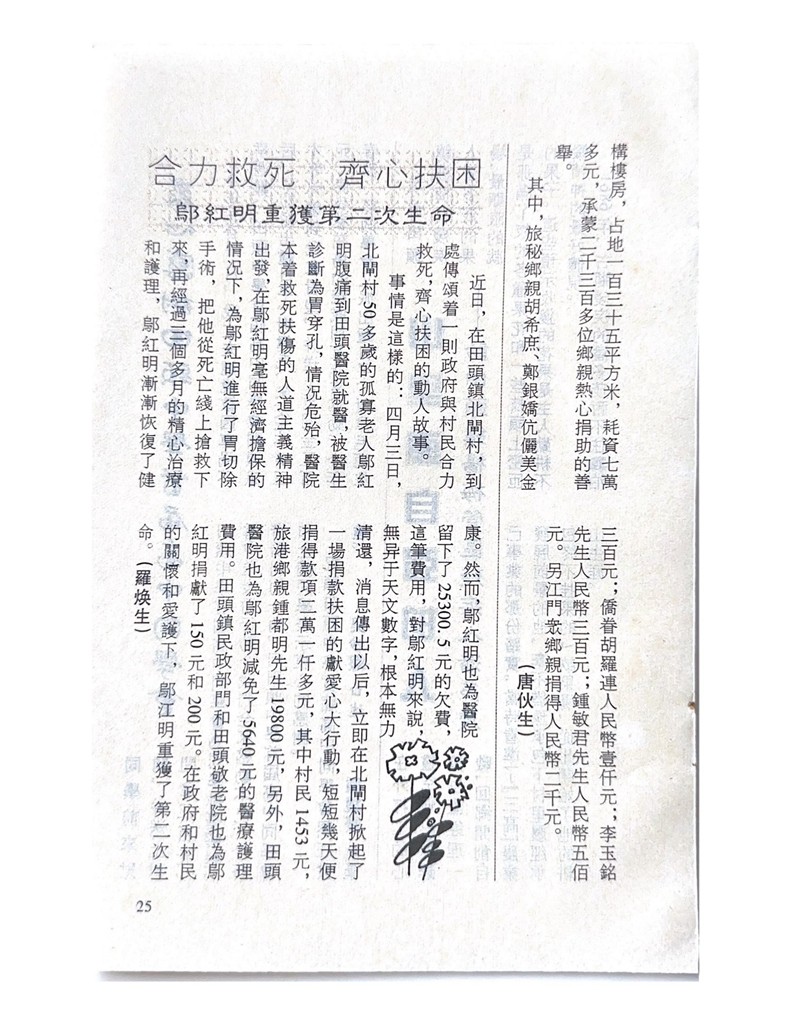 構樓房，占地一百三十五平方米，耗資七萬
多元，承蒙二千三百多位鄉親熱心捐助的善
舉。
其中，旅秘鄉親胡希庶、鄭銀嬌伉儷美金
三百元；僑眷胡羅連人民幣壹仟元；李玉銘
先生人民幣三百元；鍾敏君先生人民幣五佰
元。另江門衆鄉親捐得人民幣二千元。
（唐伙生）
合力救死　齊心扶困
鄔紅明重獲第二次生命
近日，在田頭鎮北閘村，到
處傳頌着一則政府與村民合力
救死，齊心扶困的動人故事。
事情是這樣的：四月三日，
北閘村50多歲的孤寡老人鄔紅
明腹痛到田頭醫院就醫，被醫生
診斷為胃穿孔，情況危殆，醫院
本着救死扶傷的人道主義精神
出發，在鄔紅明毫無經濟擔保的
情况下，為鄔紅明進行了胃切除
手術，把他從死亡綫上搶救下
來，再經過三個多月的精心治療
和護理，鄔紅明漸漸恢復了健
康。然而，鄔紅明也為醫院
留下了25300.5元的欠費，
這筆費用，對鄔紅明來說，
無异于天文數字，根本無力
清還，消息傳出以后，立即在北閘村掀起了
一場捐款扶困的獻愛心大行動，短短幾天便
捐得款項二萬一仟多元，其中村民1453元，
旅港鄉親鍾都明先生19800元，另外，田頭
醫院也為鄔紅明減免了5640元的醫療護理
費用。田頭鎮民政部門和田頭敬老院也為鄔
紅明捐獻了150元和200元。在政府和村民
的關懷和愛護下，鄔江明重獲了第二次生
命。（羅焕生）
25